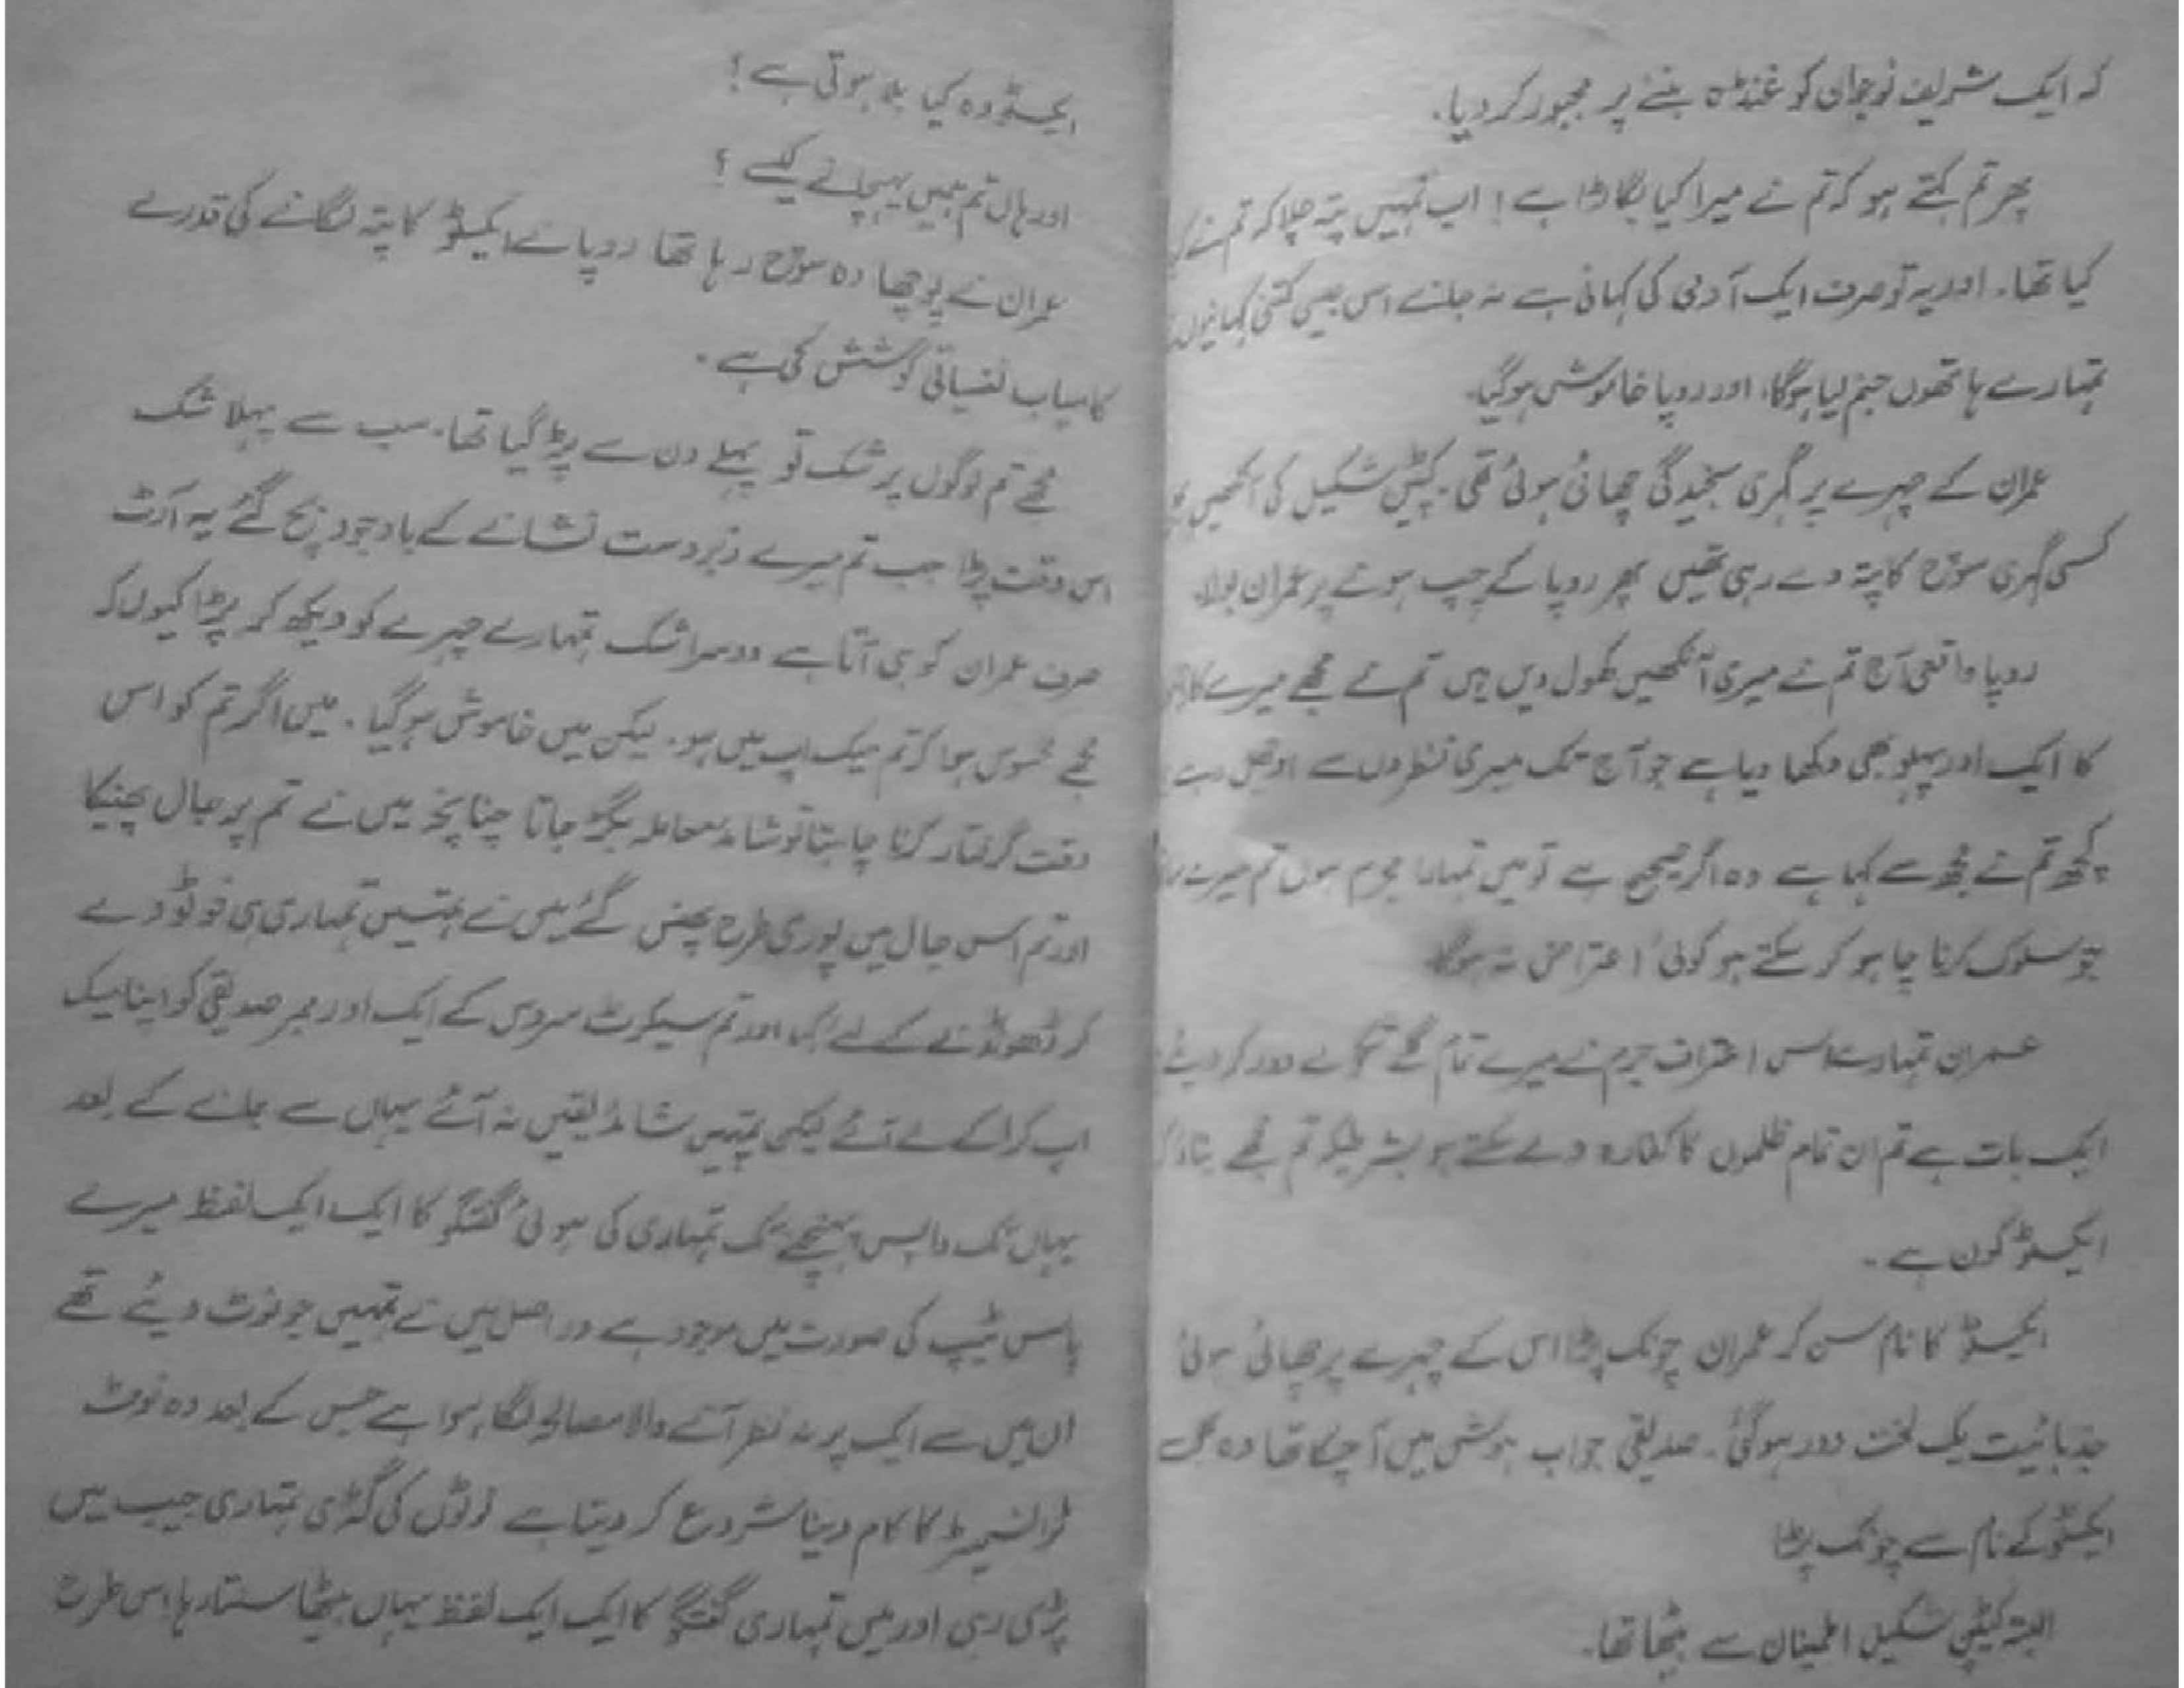 کہ ایک شریف نوجوان کو غنڈہ بننے پر مجبور کر دیا۔
پھر تم کہتے ہو کہ تم نے میرا کیا بگاڑا ہے! اب تمہیں پتہ چلا کہ تم نے
کیا تھا۔ اور یہ تو صرف ایک آدمی کی کہانی ہے نہ جانے اس جیسی کتنی کہانیوں
تمہارے ہاتھوں جنم لیا ہوگا، اور روپا خاموش ہوگیا۔
عمران کے چہرے پر گہری سنجیدگی چھائی ہوئی تھی۔ کیپٹن شکیل کی آنکھیں
کسی گہری سوچ کا پتہ دے رہی تھیں پھر روپا کے چپ ہونے پر عمران بولا۔
روپا واقعی آج تم نے میری آنکھیں کھول دیں ہیں تم نے مجھے میرے
کا ایک اور پہلو بھی دکھا دیا ہے جو آج تک میری نظروں سے اوجھل رہے
کچھ تم نے مجھ سے کہا ہے وہ اگر صحیح ہے تو میں تمہارا مجرم ہوں تم میرے
جو سلوک کرنا چاہو کر سکتے ہو کوئی اعتراض نہ ہوگا۔
عمران تمہارے اس اعتراف جرم نے میرے تمام گلے شکوے دور کر دیئے
ایک بات ہے تم ان تمام ظلموں کا کفارہ دے سکتے ہو بشرطیکہ تم مجھے
ایکسٹو کون ہے۔
ایکسٹو کا نام سن کر عمران چونک پڑا اس کے چہرے پر چھائی ہوئی
جذبائیت یک لخت دور ہوگئی۔ صدیقی جواب ہوش میں آ چکا تھا وہ بھی
ایکسٹو کے نام سے چونک پڑا
البتہ کیپٹن شکیل اطمینان سے بیٹھا تھا۔
ایکسٹو وہ کیا بلا ہوتی ہے!
اور ہاں تم ہمیں پہچانے کیسے؟
عمران نے پوچھا وہ سوچ رہا تھا روپا نے ایکسٹو کا پتہ لگانے کی قدرے
کامیاب نفسیاتی کوشش کی ہے۔
مجھے تم لوگوں پر شک تو پہلے دن سے پڑ گیا تھا۔ سب سے پہلا شک
اس وقت پڑا جب تم میرے زبردست نشانے کے باوجود بچ گئے یہ آرٹ
صرف عمران کو ہی آتا ہے دوسرا شک تمہارے چہرے کو دیکھ کر پڑا کیوں کہ
مجھے محسوس ہوا کہ تم میک اپ میں ہو۔ لیکن میں خاموش ہوگیا۔ میں اگر تم کو اس
وقت گرفتار کرنا چاہتا تو شائد معاملہ بگڑ جاتا چنانچہ میں نے تم پر جال پھینکا
اور تم اس جال میں پوری طرح پھنس گئے میں نے تمہیں تمہاری ہی فوٹو دے
کر ڈھونڈنے کے لئے کہا اور تم سیکرٹ سروس کے ایک اور ممبر صدیقی کو اپنا میک
اپ کرا کے لے آئے لیکن تمہیں شائد یقین نہ آئے یہاں سے جانے کے بعد
یہاں تک واپس پہنچنے تک تمہاری کی ہوئی گفتگو کا ایک ایک لفظ میرے
پاس ٹیپ کی صورت میں موجود ہے در اصل میں نے تمہیں جو نوٹ دیئے تھے
ان میں سے ایک پر نہ نظر آنے والا مصالحہ لگا ہوا ہے جس کے بعد وہ نوٹ
ٹرانسمیٹر کا کام دینا شروع کر دیتا ہے نوٹوں کی گڈی تمہاری جیب میں
پڑی رہی اور میں تمہاری گفتگو کا ایک ایک لفظ یہاں بیٹھا سنتا رہا اس طرح